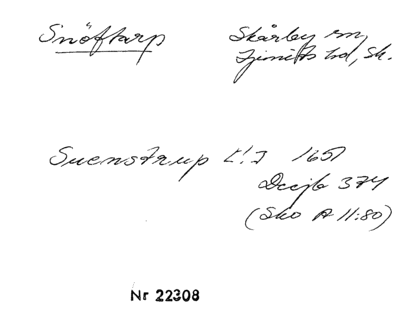 Snöftarp Skårby sn,
Ljunits hd, Sk.
Suenstrup 1651
Dccjb 374
(Sko A 11:80)
Nr 22308